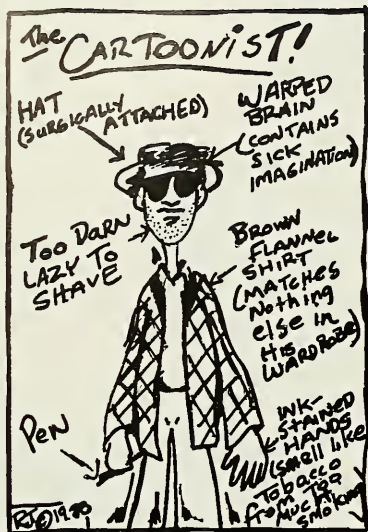 The
CARTOONIST!
HAT
(SURGICALLY
ATTACHED)
WARPED
BRAIN
(CONTAINS
SICK
IMAGINATION)
TOO DARN
LAZY TO
SHAVE
BROWN
FLANNEL
SHIRT
(MATCHES
NOTHING
ELSE IN
HIS
WARDROBE)
PEN
INK-
STAINED
HANDS
(SMELL LIKE
TOBACCO
FROM TOO
MUCH
SMOKING)
RJ©1980